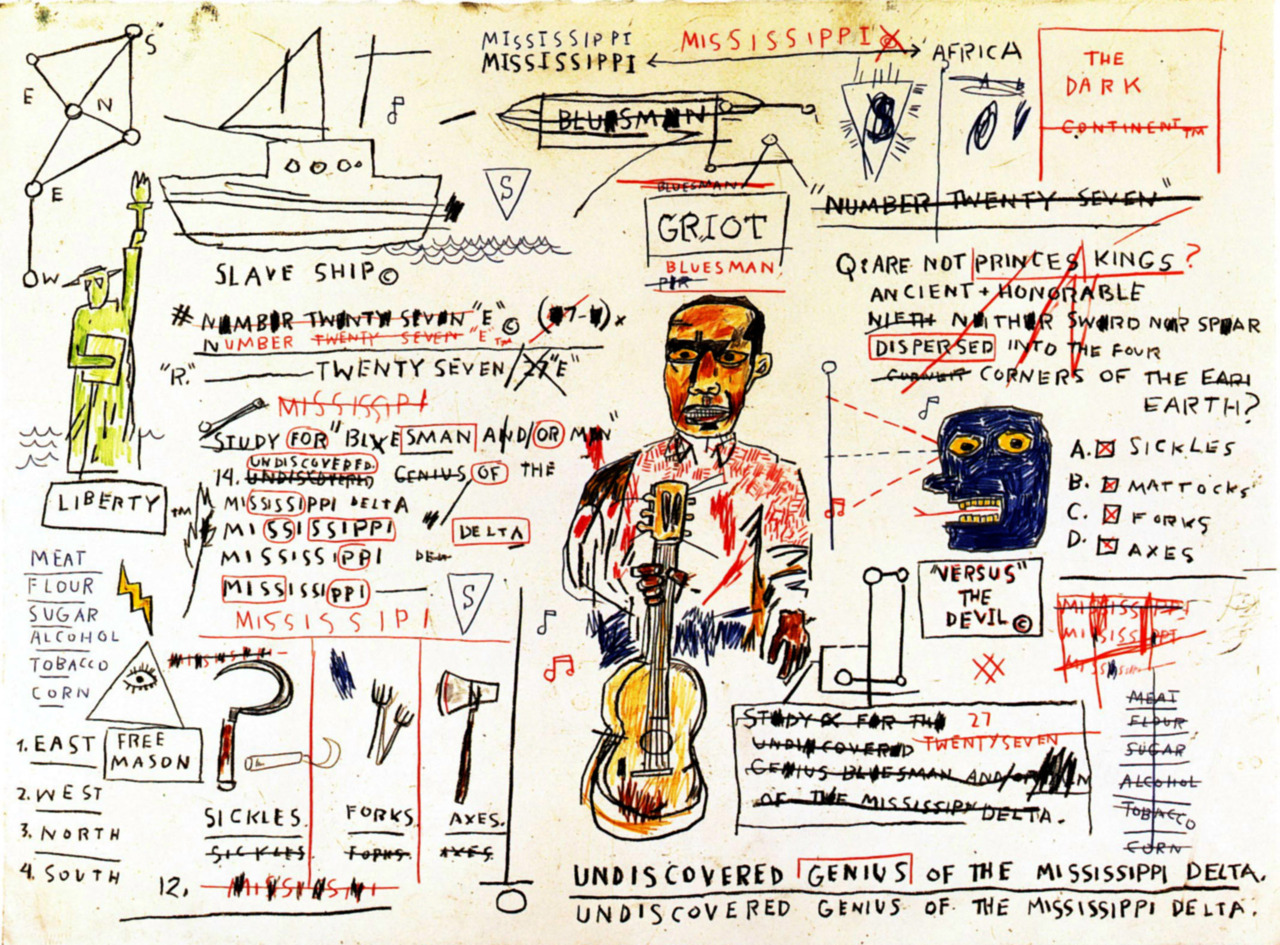 S
E
N
E
W
MISSISSIPPI
MISSISSIPPI
MISSISSIPPI
AFRICA
THE
DARK
CONTINENT™
BLUESMAN
S
A B
S
"NUMBER TWENTY SEVEN"
BLUESMAN
GRIOT
BLUESMAN
SLAVE SHIP ©
# NUMBER TWENTY SEVEN "E" ©
NUMBER TWENTY SEVEN "E"™
"R." TWENTY SEVEN/27 "E"
MISSISSIPI
STUDY FOR "BLUESMAN AND/OR MAN"
UNDISCOVERED
14. UNDISCOVERED GENIUS OF THE
MISSISSIPPI DELTA
MISSISSIPPI DELTA
MISSISSIPPI DEL
MISSISSIPPI
MISSISSIPI
S
LIBERTY ™
MEAT
FLOUR
SUGAR
ALCOHOL
TOBACCO
CORN
1. EAST
2. WEST
3. NORTH
4. SOUTH
FREE
MASON
SICKLES.
SICKLES
FORKS.
FORKS.
AXES.
AXES.
12.
Q: ARE NOT PRINCES KINGS?
ANCIENT + HONORABLE
NIETH NEITHER SWORD NOR SPEAR
DISPERSED INTO THE FOUR
CORNERS OF THE EARI
EARTH?
A. SICKLES
B. MATTOCKS
C. FORKS
D. AXES
"VERSUS"
THE
DEVIL ©
MISSISSIPPI
MISSISSIPPI
MEAT
FLOUR
SUGAR
ALCOHOL
TOBACCO
CORN
STUDY FOR THE 27
UNDISCOVERED TWENTYSEVEN
GENIUS BLUESMAN AND/OR MAN
OF THE MISSISSIPPI DELTA.
UNDISCOVERED GENIUS OF THE MISSISSIPPI DELTA.
UNDISCOVERED GENIUS OF THE MISSISSIPPI DELTA.